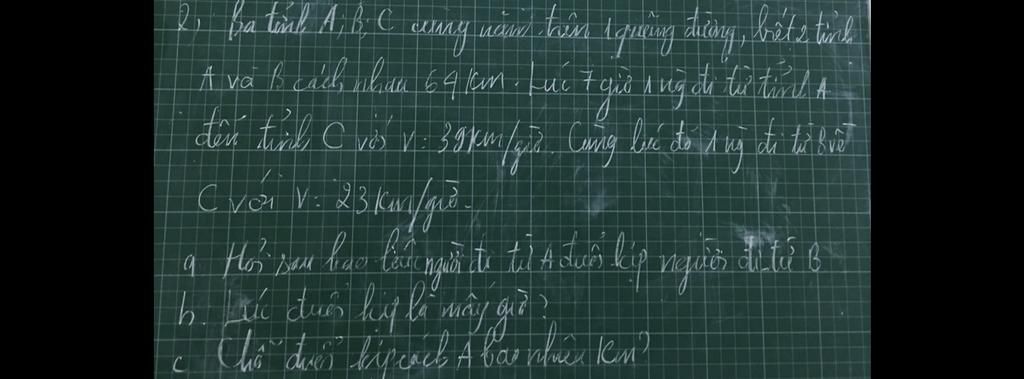 2, Ba tỉnh A; B; C cùng nằm trên 1 quãng đường, biết 2 tỉnh
A và B cách nhau 64 km. Lúc 7 giờ 1 ng đi từ tỉnh A
đến tỉnh C với V: 39km/giờ. Cùng lúc đó 1 ng đi từ B về
C với V: 23 km/giờ.
a Hỏi sau bao lâu người đi từ A đuổi kịp người đi từ B
b. Lúc đuổi kịp là mấy giờ?
c Chỗ đuổi kịp cách A bao nhiêu Km?